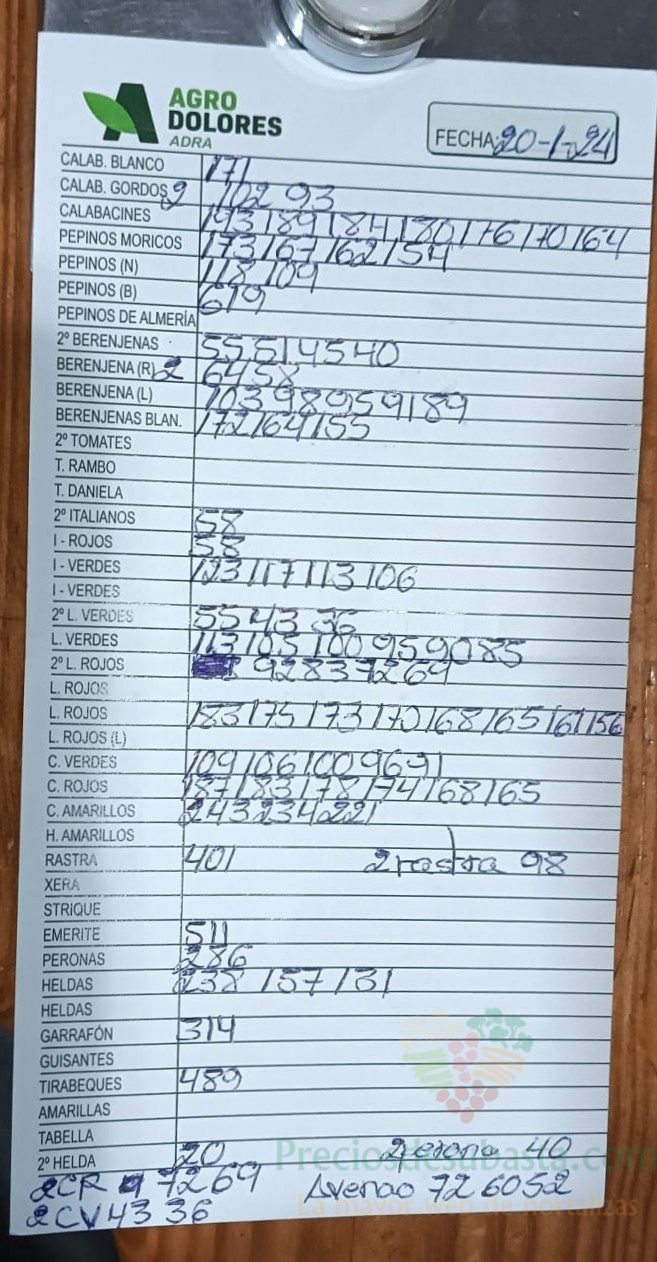 AGRO
DOLORES
ADRA
FECHA: 20-1-24
CALAB. BLANCO 171
CALAB. GORDOS 2 102 93
CALABACINES 193 189 184 180 176 170 164
PEPINOS MORICOS 173 167 162 154
PEPINOS (N) 118 109
PEPINOS (B)
PEPINOS DE ALMERÍA
2º BERENJENAS 55 51 45 40
BERENJENA (R) 2 64 58
BERENJENA (L) 103 98 95 91 89
BERENJENAS BLAN. 172 164 155
2º TOMATES
T. RAMBO
T. DANIELA
2º ITALIANOS 58
I - ROJOS 58
I - VERDES 123 117 113 106
I - VERDES
2º L. VERDES 55 43 36
L. VERDES 113 105 100 95 90 85
2º L. ROJOS 92 83 72 69
L. ROJOS
L. ROJOS 183 175 173 170 168 165 161 156
L. ROJOS (L)
C. VERDES 109 106 100 96 91
C. ROJOS 187 183 178 174 168 165
C. AMARILLOS 243 234 221
H. AMARILLOS
RASTRA 401 2 rastra 98
XERA
STRIQUE
EMERITE 511
PERONAS 286
HELDAS 238 157 131
HELDAS
GARRAFÓN 314
GUISANTES
TIRABEQUES 489
AMARILLAS
TABELLA
2º HELDA 20 2 perona 40
Preciosdesubasta.com
2CR 72 69 Avenao 72 60 52
La mayor web de hortalizas
2CV 43 36